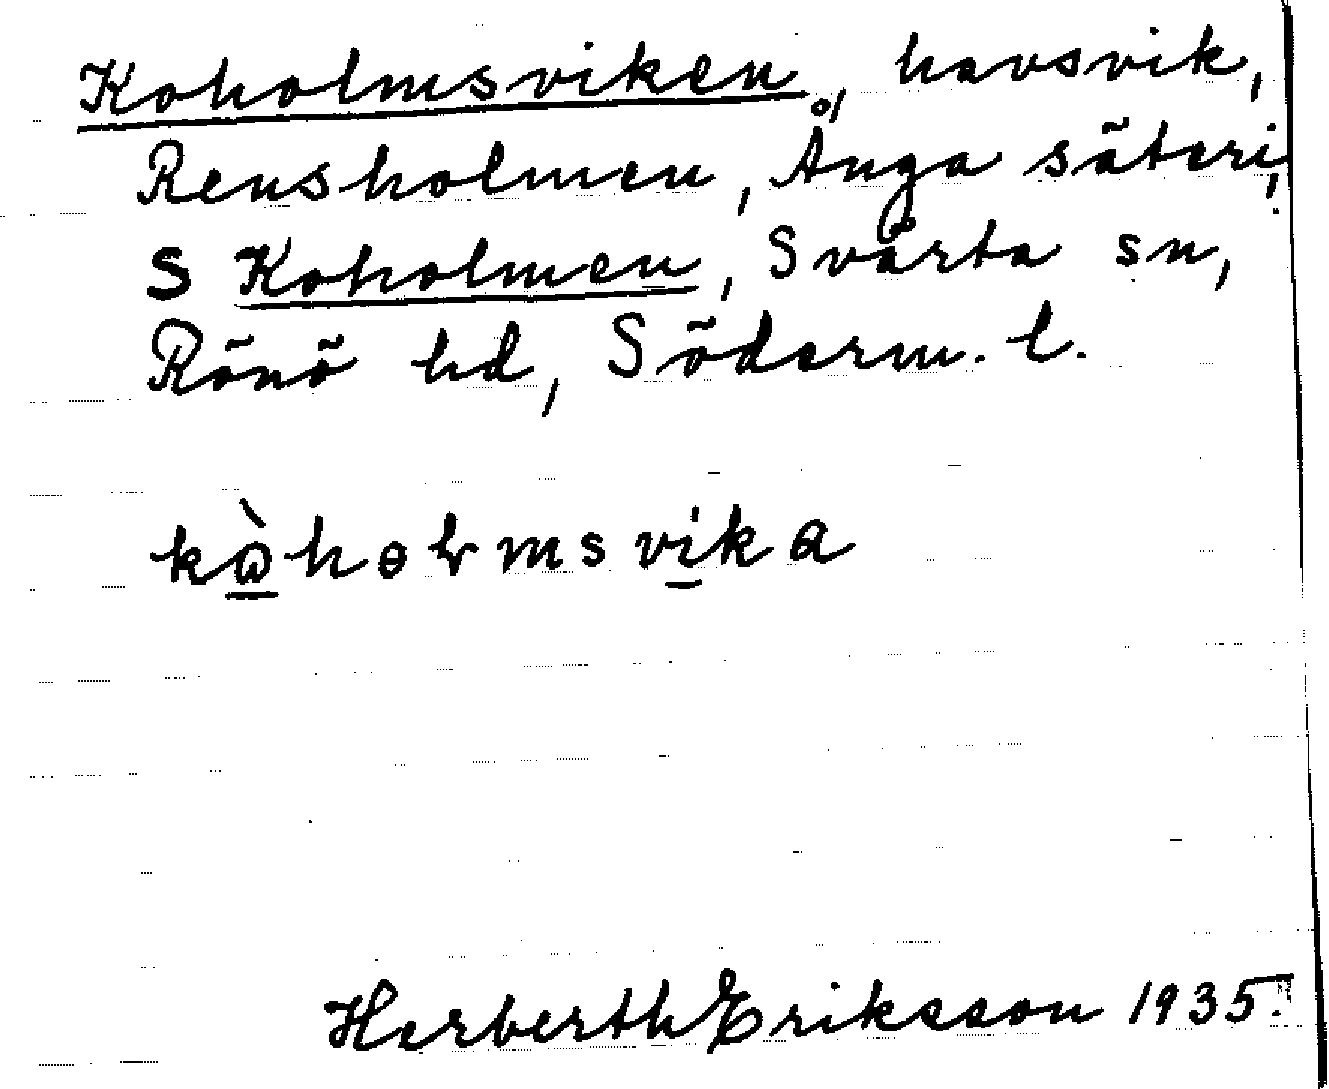 Koholmsviken, havsvik,
Rensholmen, Ånga säteri,
S Koholmen, Svärta sn,
Rönö hd, Söderm. l.
Herberth Eriksson 1935.